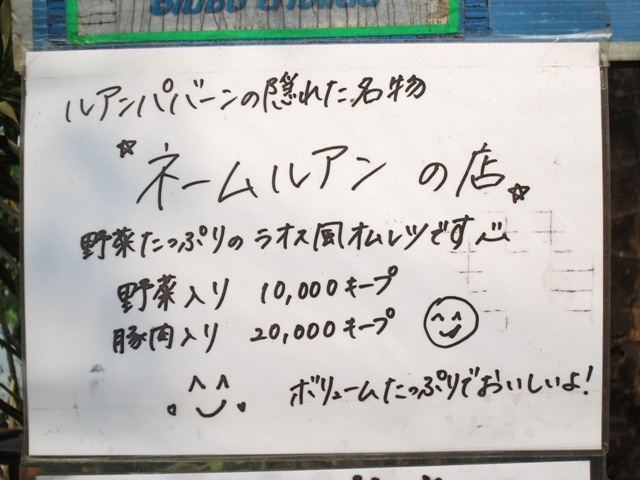 ルアンパバーンの隠れた名物
☆ネームルアンの店☆
野菜たっぷりのラオス風オムレツです
野菜入り 10,000キープ
豚肉入り 20,000キープ
ボリュームたっぷりでおいしいよ!